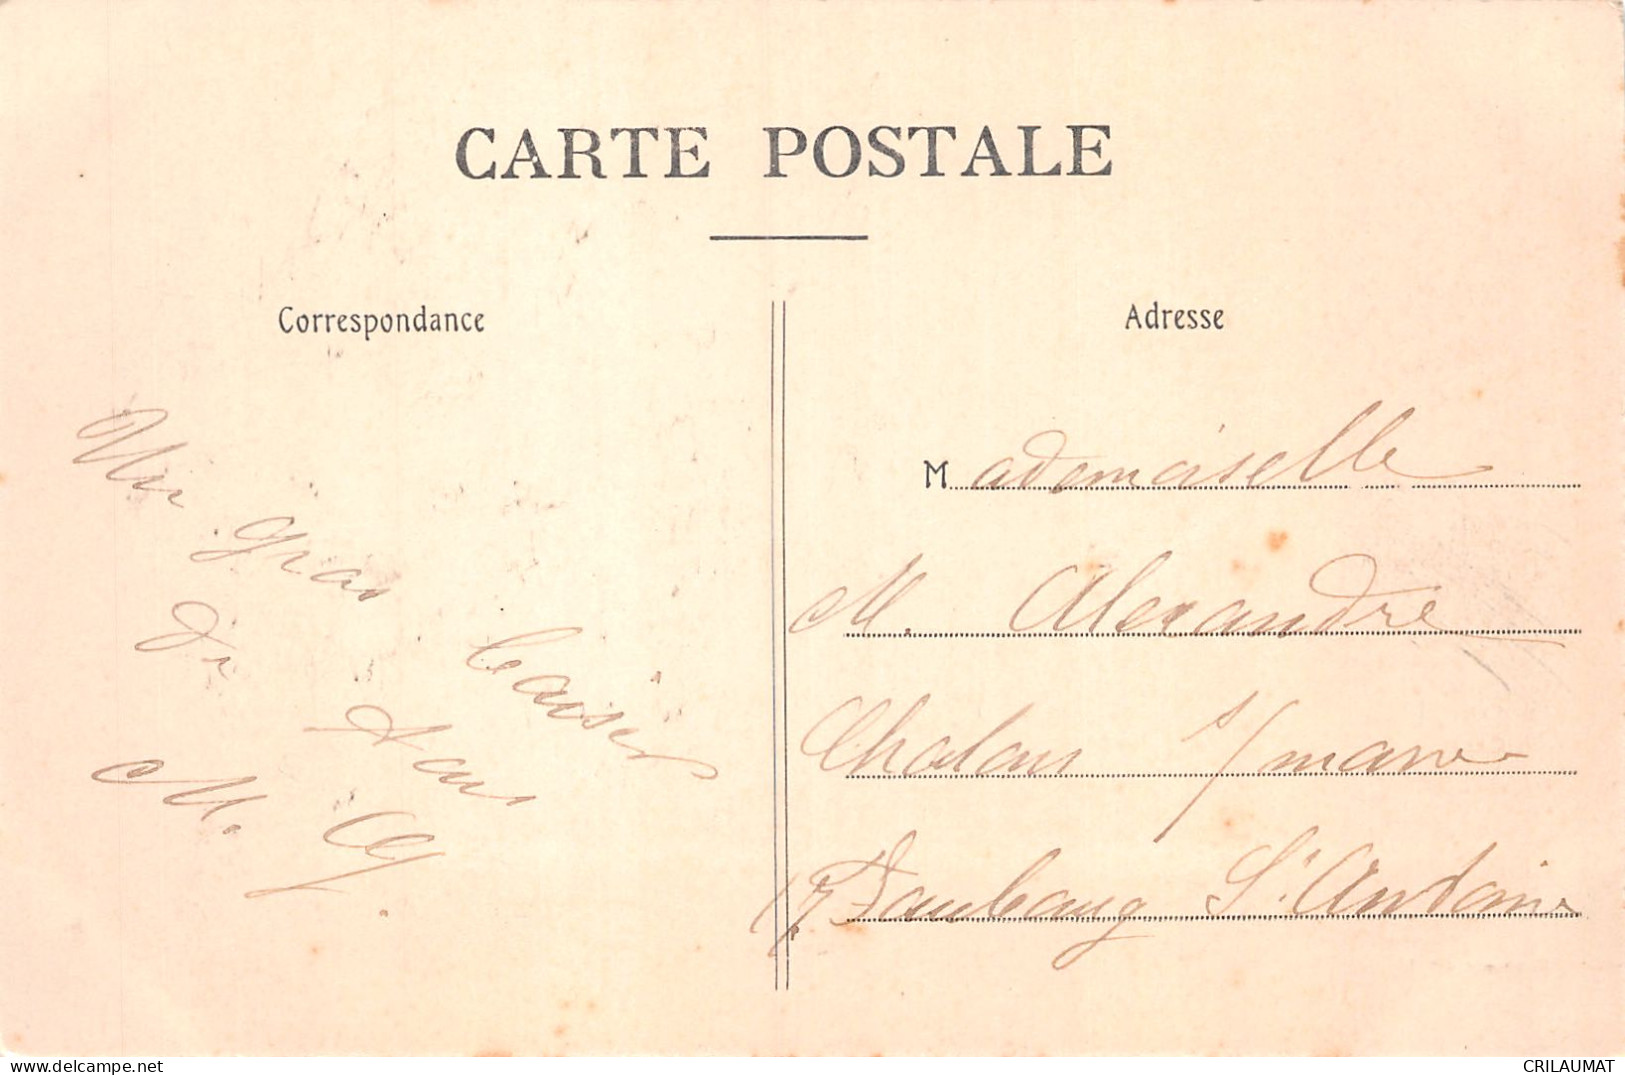 CARTE POSTALE
Correspondance
Un gros baiser
de tous
M.
Adresse
Mademoiselle
M. Alexandre
Chalons s/ marne
17 Faubourg St Antoine
www.delcampe.net
CRILAUMAT